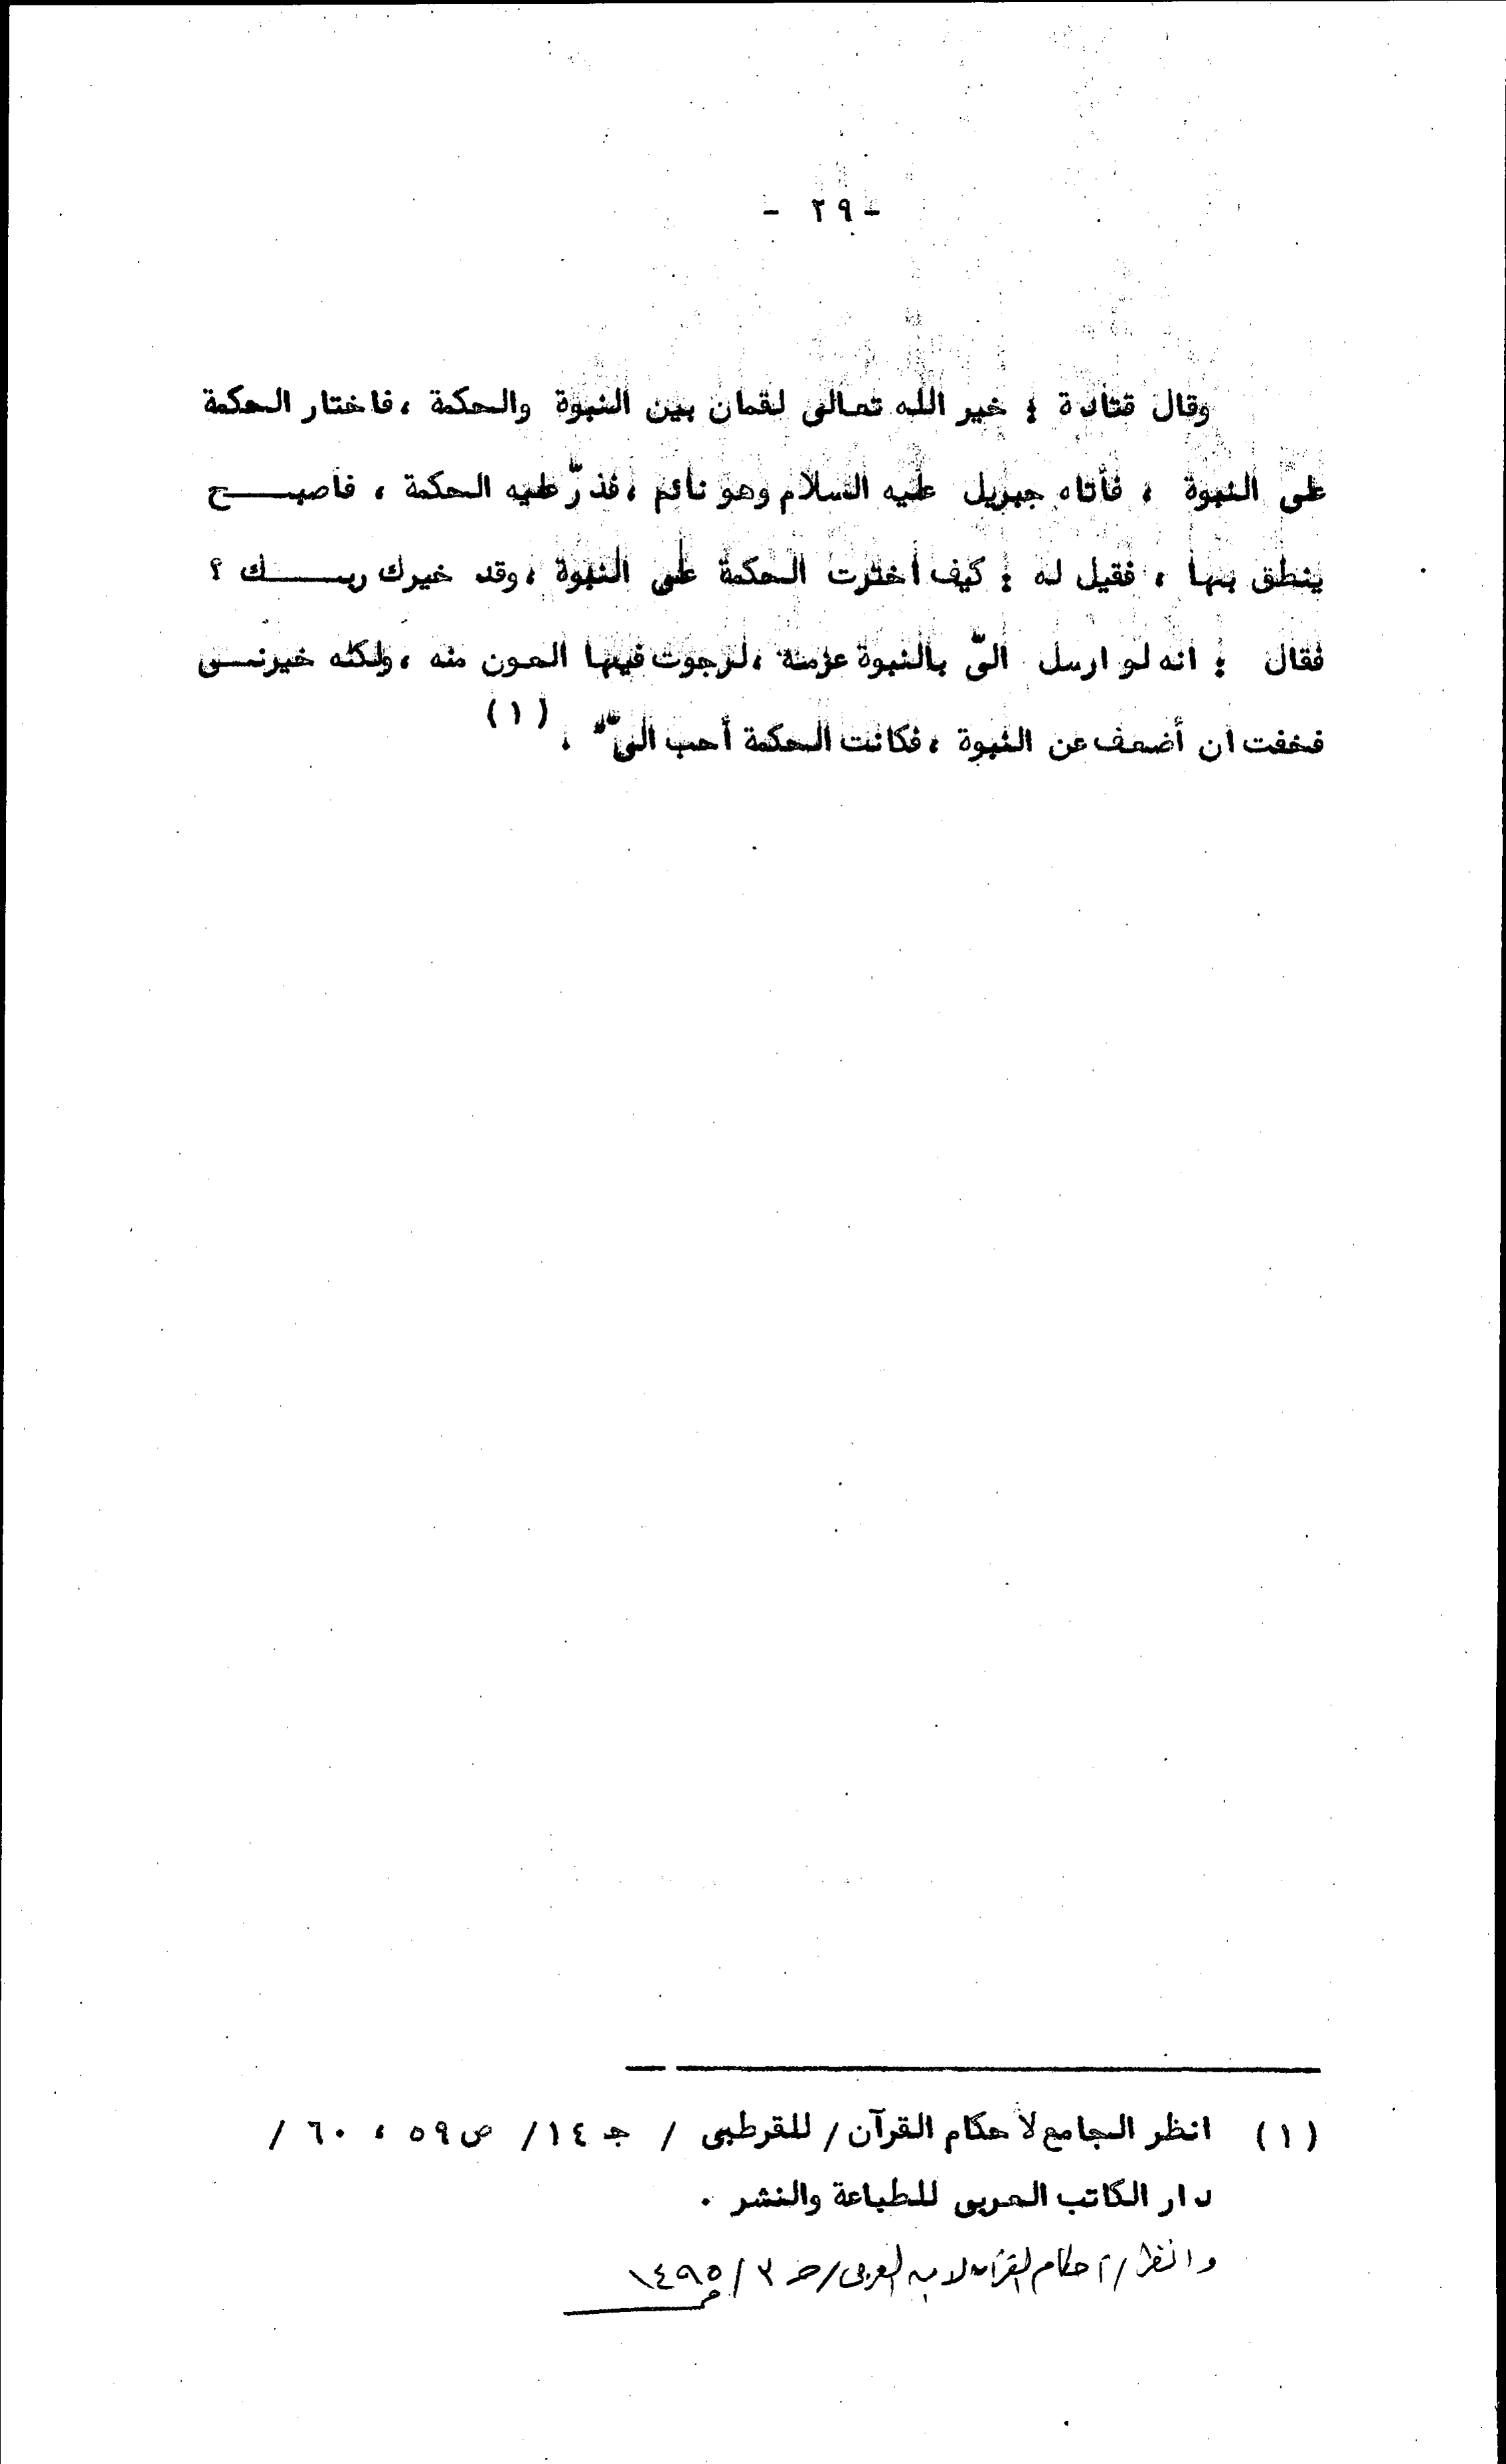 - ٢٩ -
وقال قتادة : خير الله تعالى لقمان بين النبوة والحكمة ، فاختار الحكمة
على النبوة ، فأتاه جبريل عليه السلام وهو نائم ، فذرّ عليه الحكمة ، فأصبح
ينطق بها ، فقيل له : كيف أخترت الحكمة على النبوة ، وقد خيرك ربك ؟
فقال : انه لو ارسل الىّ بالنبوة عزمة ، لرجوت فيها العون منه ، ولكنه خيرنى
فخفت ان أضعف عن النبوة ، فكانت الحكمة أحب الىّ " . (١)
(١) انظر الجامع لأحكام القرآن / للقرطبى / جـ ١٤ / ص ٥٩ ، ٦٠ /
دار الكاتب العربى للطباعة والنشر .
وانظر / أحكام القرآن لابن العربى / حـ ٣ / ١٤٩٥